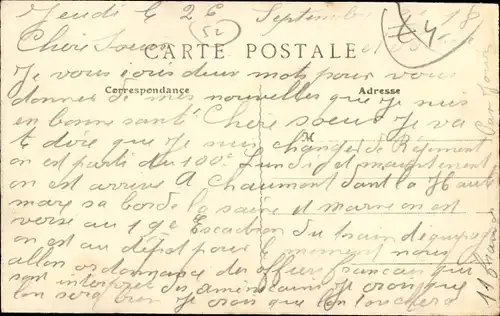 Jeudi le 26 Septembre 18
Chère Soeur
CARTE POSTALE
Correspondance
Adresse
Je vous écris deux mots pour vous
donner de mes nouvelles que Je suis
en bonne santé Chère soeur Je va
te dire que Je suis changer de Régiment
on est parti du 100e Lundi et maintenant
on est arrivé A Chaumont dant la Haute
marne sa borde la saine et marne on est
versé au 19e Escadron du train d'equipage
on est au dépot pour le moment nous
allon ordonnance des officiers francais qui
sont interpret des américains Je crois que
lon sera bien Je crois que lon touchera